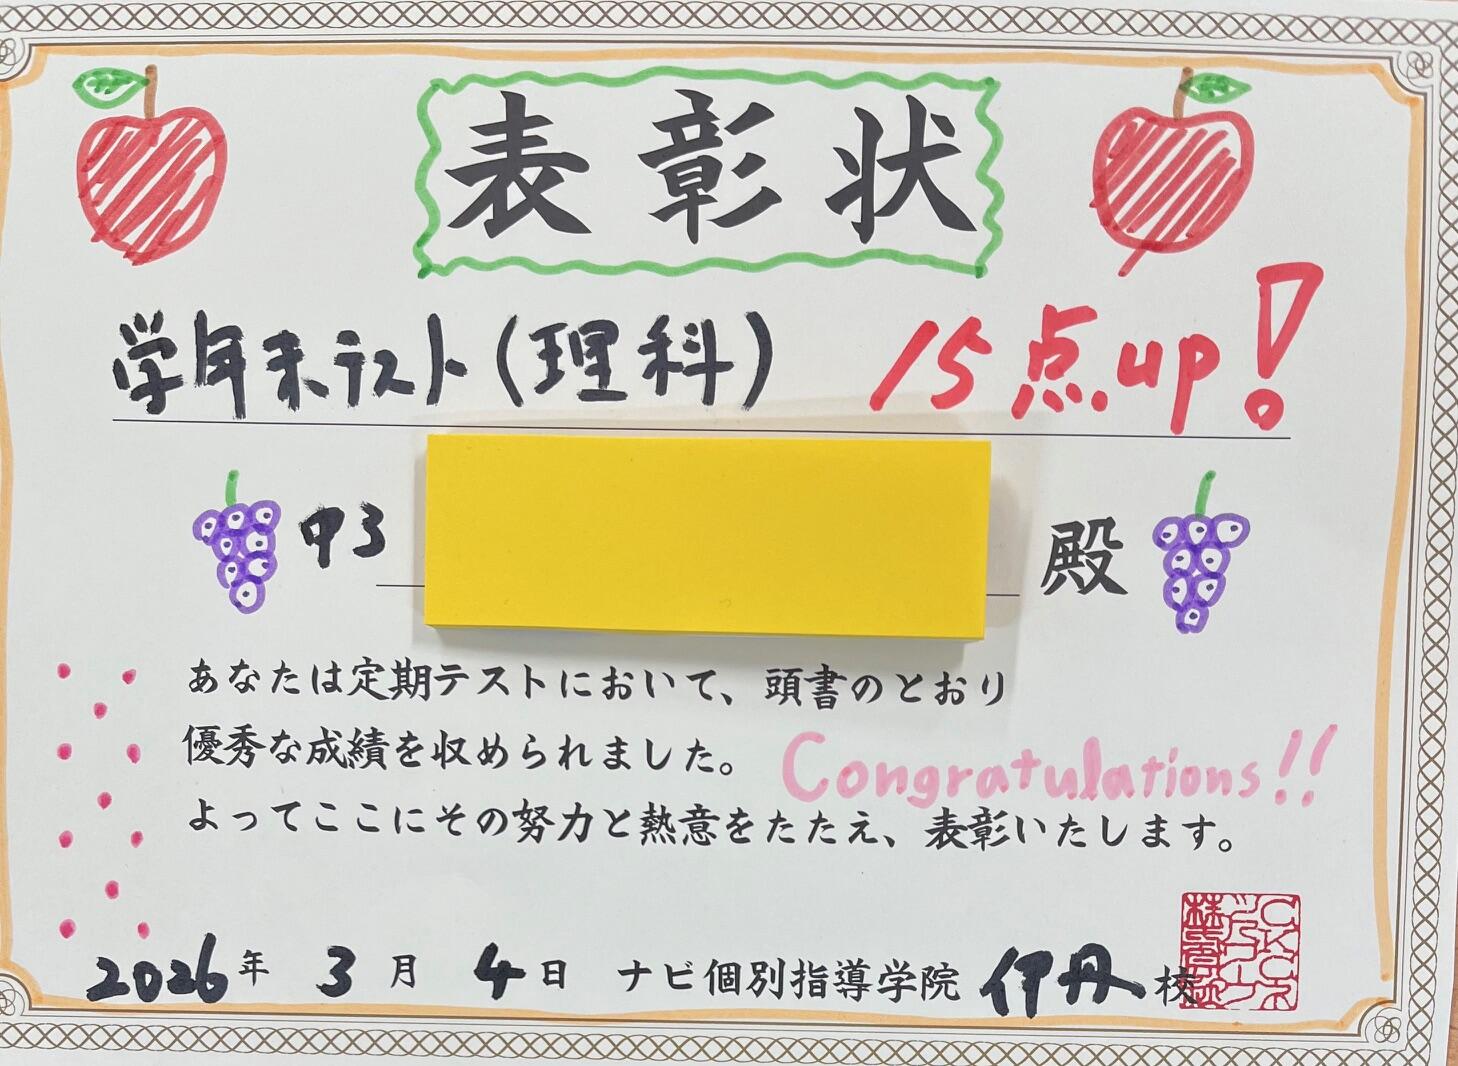 表彰状
学年末テスト(理科) 15点up!
中3 殿
あなたは定期テストにおいて、頭書のとおり
優秀な成績を収められました。
Congratulations!!
よってここにその努力と熱意をたたえ、表彰いたします。
2026年 3月 4日 ナビ個別指導学院 伊丹校